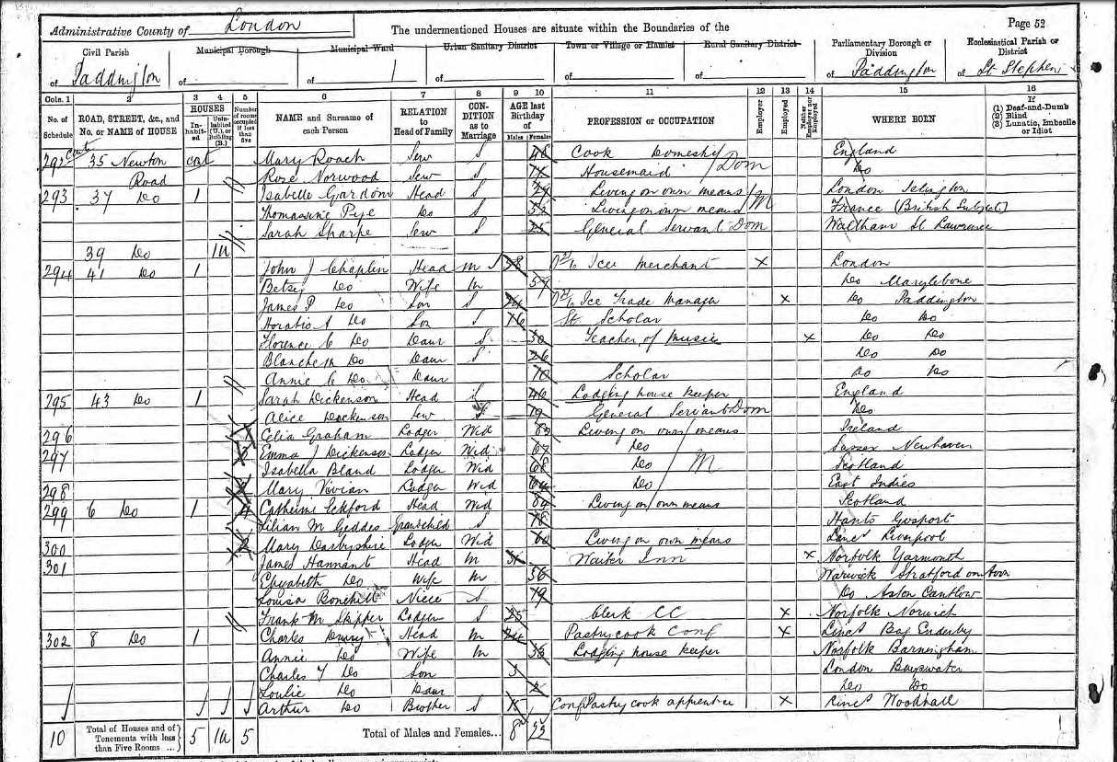 Administrative County of London The undermentioned Houses are situate within the Boundaries of the Page 52
Civil Parish Municipal Borough Municipal Ward Urban Sanitary District Town or Village or Hamlet Rural Sanitary District Parliamentary Borough or Division Ecclesiastical Parish or District
of Paddington of of of of of of Paddington of St Stephen
Cols. 1 2 3 4 5 6 7 8 9 10 11 12 13 14 15 16
No. of Schedule ROAD, STREET, &c., and No. or NAME of HOUSE HOUSES Inhabited Uninhabited (U.), or Building (B.) Number of rooms occupied if less than five NAME and Surname of each Person RELATION to Head of Family CONDITION as to Marriage AGE last Birthday of Males Females PROFESSION or OCCUPATION Employer Employed Neither Employer nor Employed WHERE BORN If (1) Deaf-and-Dumb (2) Blind (3) Lunatic, Imbecile or Idiot
292 cont 35 Newton cont Mary Roach Serv S Cook Domestic England
Road Rose Norwood Serv S Housemaid Dom Do
293 37 Do 1 Isabella Gardom Head S Living on own means London Islington
Thomasine Pye Do S Living on own means M France (British Subject)
Sarah Sharpe Serv S General Servant Dom Waltham St Lawrence
39 Do 1u
294 41 Do 1 John J Chaplin Head M 58 Ice Merchant x London
Betsy Do Wife M 54 Do Marylebone
James P Do Son S Ice Trade Manager x Do Paddington
Horatio Do Son S 16 Scholar Do Do
Florence C Do Daur S 30 Teacher of Music x Do Do
Blanche M Do Daur S 26 Do Do
Annie C Do Daur 10 Scholar Do Do
295 43 Do 1 Sarah Dickenson Head S 46 Lodging house keeper England
Alice Dickenson Serv S 19 General Servant Dom Do
296 Celia Graham Lodger Wid Living on own means Ireland
297 Emma J Dickenson Lodger Wid 67 Do Sussex Newhaven
Isabella Bland Lodger Wid 68 Do M Scotland
298 Mary Vivian Lodger Wid Do East Indies
299 6 Do 1 Catherine Eckford Head Wid Living on own means Scotland
Lilian M Geddes Grandchild S 18 Hants Gosport
300 Mary Darbyshire Lodger Wid 60 Living on own means Lancs Liverpool
301 James Hannant Head M Waiter Inn x Norfolk Yarmouth
Elizabeth Do Wife M 56 Warwick Stratford on Avon
Louisa Bonehill Niece S 19 Do Aston Cantlow
Frank M Skipper Lodger S 25 Clerk CC x Norfolk Norwich
302 8 Do 1 Charles Head M Pastrycook Conf x Lincs Bag Enderby
Annie Do Wife M 33 Lodging house keeper Norfolk Barningham
Charles Do Son 3 London Bayswater
Louie Do Daur Do Do
Arthur Do Brother S 15 Conf Pastrycook apprentice x Lincs Woodhall
10 Total of Houses and of Tenements with less than Five Rooms ... 5 1u 5 Total of Males and Females... 8 23